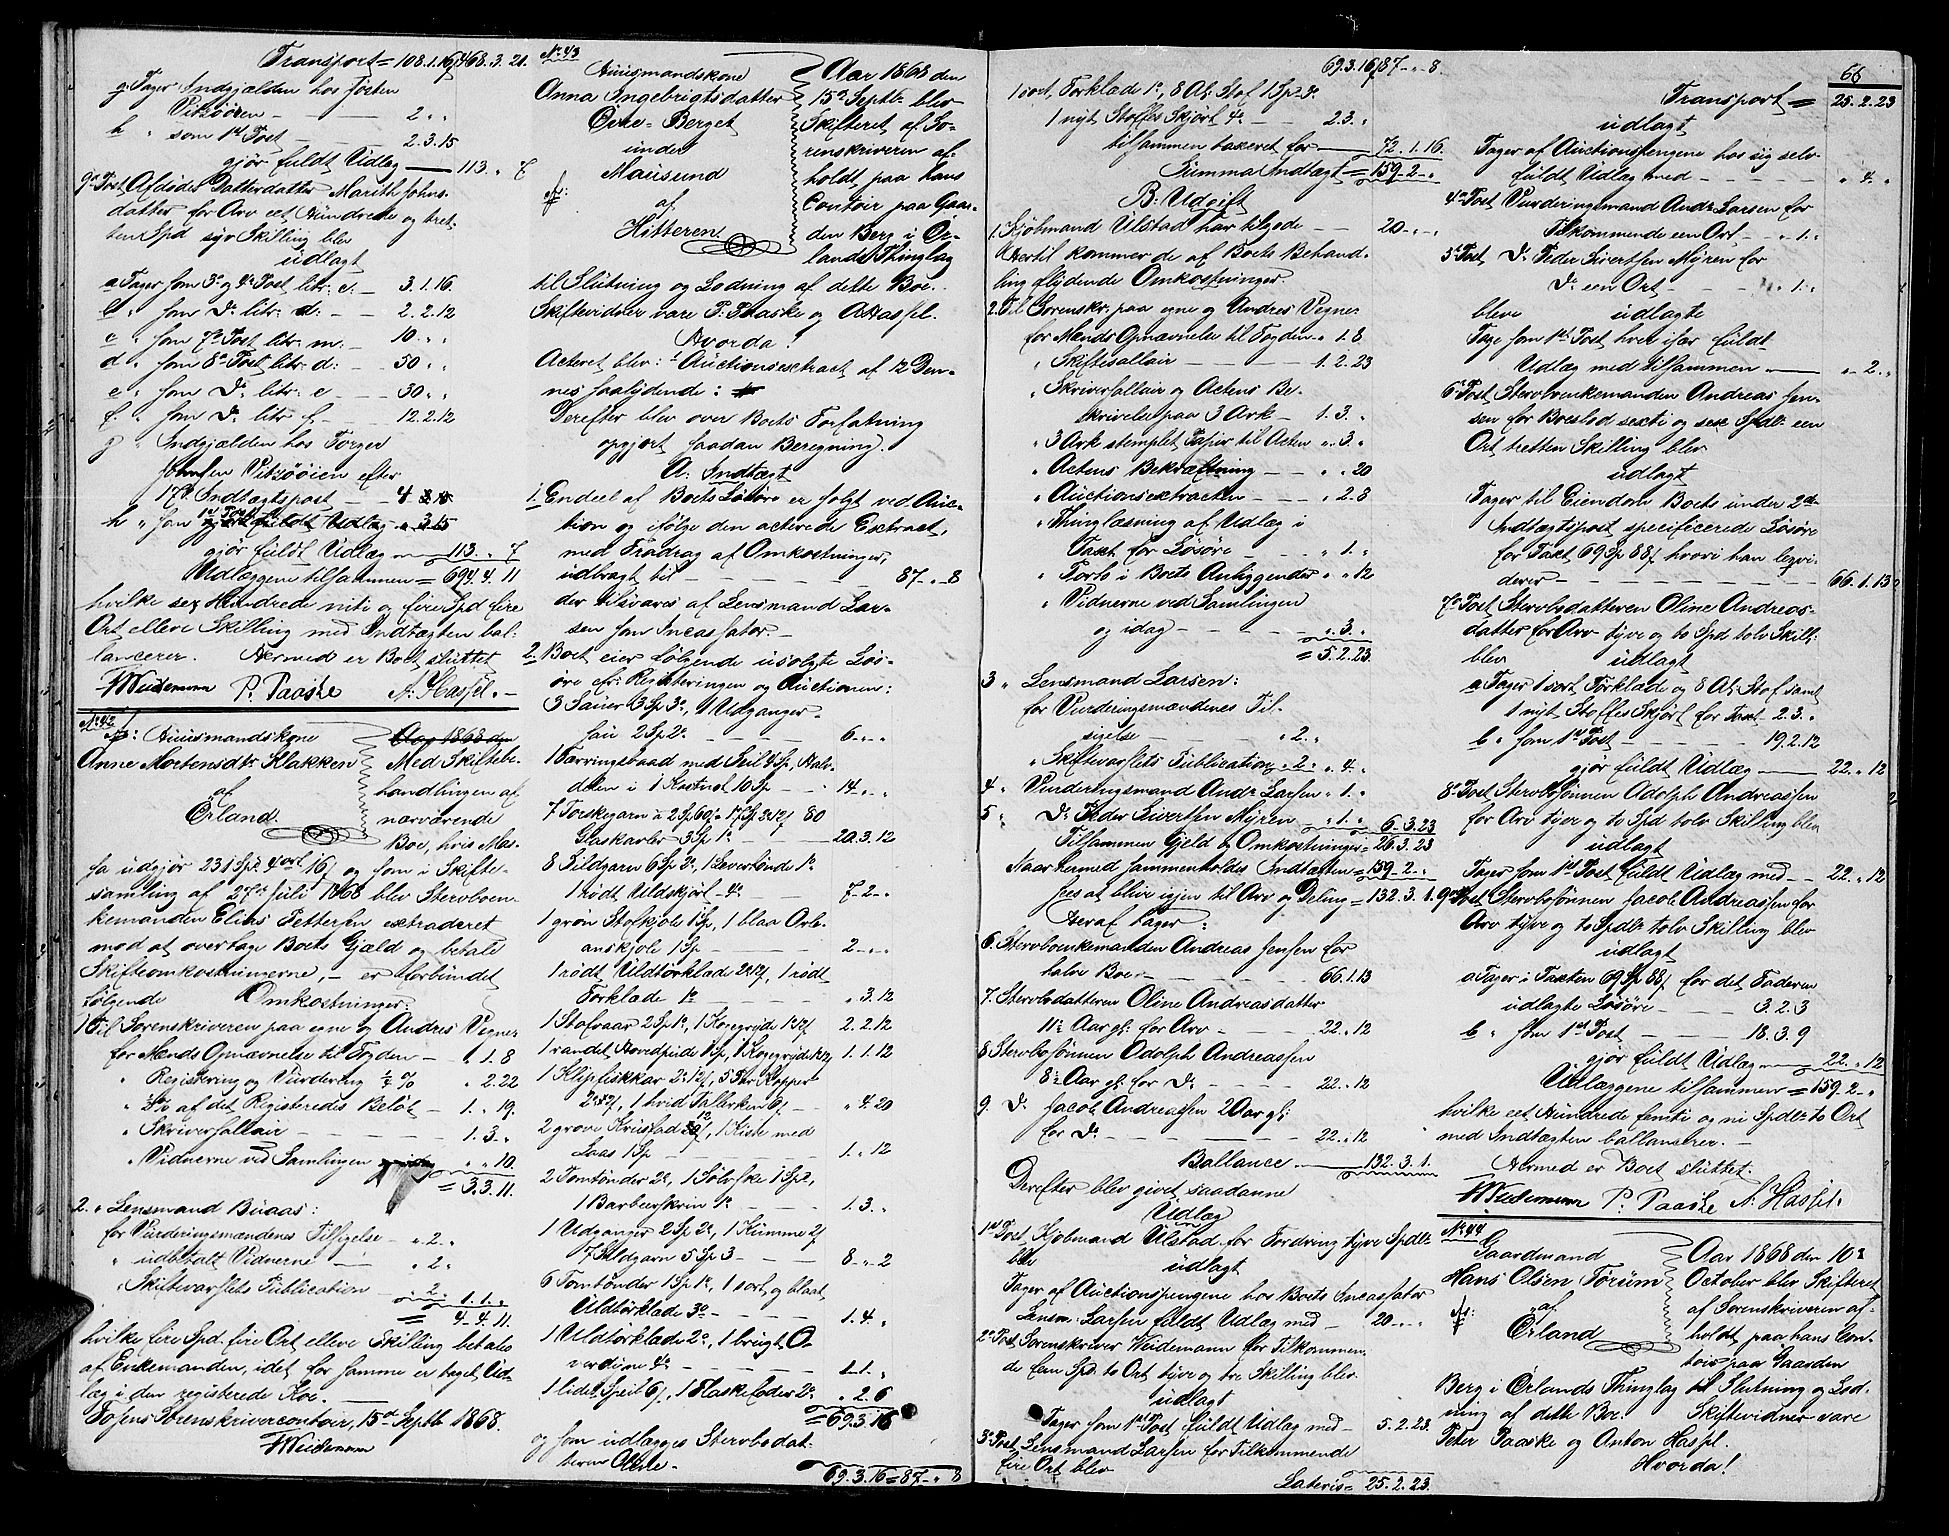 Transport = 108.1.16/468.3.21.
g. Tager Indgjælden hos Josten
Vitsøøren — 2 " "
h " som 1ste Post — 2.3.15
gjør fuldt Udlæg — 113. " 7
9de Post Afdødes Datterdatter Marith Johns-
datter for Arv eet Hundrede og tret-
ten Spd syv Skilling blev
udlagt
a Tager som 3die og 4de Post litr: c. — 3.1.16.
b " som Do litr: d: — 2.2.12
c " som 7de Post litr: m. — 10. " "
d " som 8de Post litr: d: — 50 " "
e " som Do litr: e — 30 " "
f. " som Do litr: f. — 12.2.12
g " Indgjælden hos Torger
Johnsen Vitsøöien efter
17de Indtægtspost — 4 3.15
h " som 1ste Post
gjør fuldt Udlæg — 113. " 7
Udlæggene tilsammen = 694.4.11
hvilke sex Hundrede niti og fire Spd fire
Ort elleve Skilling med Indtægten bal-
lancerer. Hermed er Boet sluttet
Weidemann P. Paaske A. Hassel. —
No 42
Huusmandskone
Anne Mortensdtr Klakken
af
Ørland.
Aar 1868 den
Med Skiftebe-
handlingen af
nærværende
Boe, hvis Mas-
sa udgjør 231 Spd. 4 ort 16 s og som i Skifte-
samling af 27de Juli 1868 blev Stervboen-
kemanden Elias Pettersen extraderet
mod at overtage Boets Gjæld og betale
Skifteomkostningerne, — er forbundet
følgende Omkostninger:
1 Til Sorenskriveren paa egne og Andres Vegne:
for Mænds Opnævnelse til Fogden — 1.1.8
" Registrering og Vurdering ¼ % " 2.22
" ½% af det Registeredes Beløb — 1. " 19.
" Skriversallair — 1.3 "
" Vidnerne ved Samlingen " " 10.
= 3.3.11.
2. " Lensmand Buaas:
for Vurderingsmændenes Tilsigelse — " 2. "
" udbetalt Vidnerne — " 2 "
" Skiftevarslets Publication — " 2 " 1.1. "
= 4.4.11.
hvilke fire Spd. fire Ort elleve Skilling betales
af Enkemanden, idet for samme er taget Ud-
læg i den registerede Koe. —
Fosens Sorenskrivercontoir, 15de Septb 1868.
Weidemann
No 43
Huusmandskone
Anna Ingebrigtsdatter
Øvre-Berget
under
Mausund
af
Hitteren.
Aar 1868 den
15de Septb. blev
Skifteret af So-
renskriveren af-
holdt paa hans
Contoir paa Gaar-
den Berg i Ør-
lands Thinglag
til Slutning og Lodning af dette Boe.
Skiftevidner vare P. Paaske og A Hassel.
Hvorda!
Acteret blev: 1. Auctionsextract af 12 Den-
nes saalydende:
Derefter blev over Boets Forfatning
opgjort saadan Beregning.
A: Indtægt
1. Endeel af Boets Løsøre er solgt ved Auc-
tion og ifølge den acterede Extract,
med Fradrag af Omkostninger,
udbragt til — 87. " 8
der tilsvares af Lensmand Lar-
sen som Incassator. —
2. Boet eier følgende usolgte Løs-
øre efr: Registeringen og Auctionen:
3 Sauer 3 Sp 3o, 1 Udganger-
sau 2 Sp 2o — 6. " "
1 Færringsbaad med Seil 4 Sp, Halv-
delen i 1 Kastnot 10 Sp — 14 " "
7 Torskegarn a 2 Sp 60 s = 17 Sp 2o 12 s 80
Glaskavler 3 Sp 1o — 20.3.12
8 Sildgarn 6 Sp 3o, 1 Levertønde 1o
1 rødt Uldskjørt 4o — 7.2. "
1 grøn Stofkjole 1 Sp, 1 blaa Orle-
anskjole 1 Sp — 2. " "
1 rødt Uldtørklade 2o 12 s, 1 rødt
Forklade 1o — " 3.12
1 Stofvaar 2 Sp 1o, 1 Kogegryde 1o 12 s 2.2.12
1 randet Hovedpude 1 Sp, 1 Kogegryde 1o 12 s 1.1.12
1 Klipfiskkar 2o 12 s, 5 Par Kopper
2o 2 s, 1 hvid Tallerken 6 s — " 4.20
2 grove Krustad 12 s, 1 Kiste med
Laas 1 Sp — 1. " 12
2 Tomtønder 2o, 1 Sølvske 1 Sp,
1 Barbeerskrin 1o — 1.3. "
1 Udganger 2 Sp 2o, 1 Kumme 2 s
7 Sildgarn 5 Sp 3 — 8. " 2
6 Tomtønder 1 Sp 1o, 1 sort og blaat
Uldtørklade 3o — 1.4. "
1 Uldtørklade 2o, 1 brugt O-
verdine 4o — 1.1. "
1 lidet Speil 6 s, 1 Flaskefoder 2o " 2.6
= 69.3.16
og som udlægges Stervbodat-
teren Oline. —
69.3.16 = 87. " 8
69.3.16/87. " 8.
1 sort Forklade 1o, 8 Al: Stof 1 Sp 4o
1 nyt Stoffes Skjørt 4o — 2.3. "
tilsammen taxeret for — 72.1.16.
Summa Indtægt = 159.2. "
B: Udgift
1. Kjøbmand Ulstad har tilgode — 20. " "
Hertil kommer de af Boets Behand-
ling flydende Omkostninger.
2. Til Sorenskr: paa egne og Andres Vegne:
for Mænds Opnævnelse til Fogden " 1.8
" Skiftesallair — 1.2.23
" Skriversallair og Actens Be-
skrivelse paa 3 Ark — 1.3. "
" 3 Ark stemplet Papir til Acten " 3. "
" Actens Bekræftning — " " 20
" Auctionsextracten — " 2.8
" Thinglæsning af Udlæg i
Taxt for Løsøre — " 1. "
" Porto i Boets Anliggender " " 12
" Vidnerne ved Samlingen
og idag — " 3. "
= 5.2.23.
3 " Lensmand Larsen:
for Vurderingsmændenes Til-
sigelse — " 2. "
" Skiftevarslets Publication " 2 " " 4. "
4 " Vurderingsmand Andr Larsen " 1. "
5 " Do Peder Sivertsen Myren — " 1. " 6.3.23
Tilsammen Gjeld & Omkostninger = 26.3.23
Naar hermed sammenholdes Indtægten = 159.2. "
sees at blive igjen til Arv og Deling = 132.3.1.
Heraf tager:
6. Stervboenkemanden Andreas Jensen for
halve Boe — 66.1.13
7. Stervbodatteren Oline Andreasdatter
11½ Aar gl: for Arv — 22. " 12
8 Stervbosønnen Adolph Andreassen
8½ Aar gl: for Do — 22. " 12
9. Do Jacob Andreassen 2 Aar gl:
for Do — 22. " 12
Ballance — 132.3.1.
Derefter blev givet saadanne
Udlæg
1ste Post Kjøbmand Ulstad for Fordring tyve Spdlr
ble udlagt
Tager af Auctionspengene hos Boets Incassator
Lensm: Larsen fuldt Udlæg med — 20. " "
2de Post Sorenskriver Weidemann for Tilkommen-
de fem Spd. to Ort tyve og tre Skilling blev
udlagt
Tager som 1ste Post fuldt Udlæg med — 5.2.23
3die Post Lensmand Larsen for Tilkommende
fire Ort blev
Lateris = 25.2.23.
66
Transport = 25.2.23
udlagt
Tager af Auctionspengene hos sig selv
fuldt Udlæg med — " 4. "
4de Post Vurderingsmand Andr Larsen for
Tilkommende een Ort — " 1. "
5te Post Do Peder Sivertsen Myren for
Do een Ort — " 1. "
bleve udlagte
Tage som 1ste Post hver især fuldt
Udlæg med tilsammen — " 2. "
6te Post Stervboenkemanden Andreas Jen-
sen for Boeslod sexti og sex Spdlr een
Ort tretten Skilling blev
udlagt
Tager til Eiendom Boets under 2den
Indtægtspost specificerede Løsøre
for Taxt 69 Sp 88 s hvori han leqvi-
derer — 66.1.13
7de Post Stervbodatteren Oline Andreas-
datter for Arv tyve og to Spd tolv Skill:
blev udlagt
a Tager 1 sort Forklade og 8 Al: Stof samt
1 nyt Stoffes Skjørt for Taxt 2.3. "
b " som 1ste Post — 19.2.12
gjør fuldt Udlæg — 22. " 12
8de Post Stervbosønnen Adolph Andreassen
for Arv tyve og to Spd tolv Skilling blev
udlagt
Tager som 1ste Post fuldt Udlæg med — 22. " 12
9de Post Stervbosønnen Jacob Andreassen for
Arv tyve og to Spdlr tolv Skilling blev
udlagt
a Tager i Taxten 69 Sp 88 s for det Faderen
udlagte Løsøre — 3.2.3
b " som 1ste Post — 18.3.9
gjør fuldt Udlæg — 22. " 12
Udlæggene tilsammen = 159.2. "
hvilke eet Hundrede femti og ni Spdlr to Ort
med Indtægten ballanserer. —
Hermed er Boet sluttet.
Weidemann P. Paaske A. Hassel.
No 44
Gaardmand
Hans Olsen Førum
af
Ørland
Aar 1868 den 10de
October blev Skifteret
af Sorenskriveren af-
holdt paa hans Con-
toir paa Gaarden
Berg i Ørlands Thinglag til Slutning og Lod-
ning af dette Boe. Skiftevidner vare
Peter Paaske og Anton Hassel.
Hvorda!